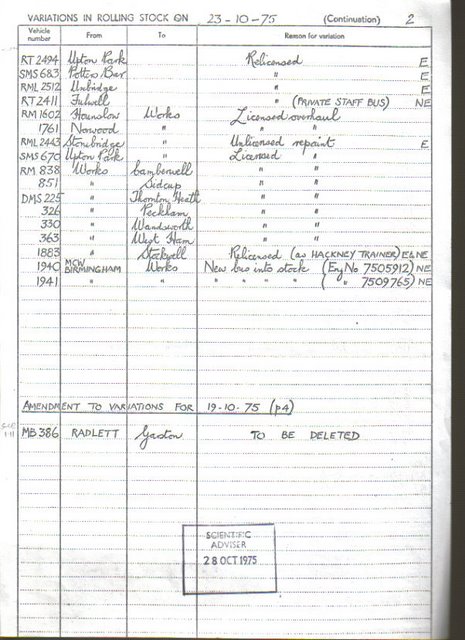 VARIATIONS IN ROLLING STOCK ON 23-10-75 (Continuation) 2
Vehicle number From To Reason for variation
RT 2494 Upton Park Relicensed E
SMS 683 Potters Bar " E
RML 2512 Uxbridge " E
RT 2411 Fulwell " (PRIVATE STAFF BUS) NE
RM 1602 Hounslow Works Licensed overhaul
1761 Norwood " " "
RML 2443 Stonebridge " Unlicensed repaint E
SMS 670 Upton Park " Licensed "
RM 838 Works Camberwell " "
851 " Sidcup " "
DMS 225 " Thornton Heath " "
326 " Peckham " "
330 " Wandsworth " "
363 " West Ham " "
1883 " Stockwell Relicensed (as HACKNEY TRAINER) E&NE
1940 MCW BIRMINGHAM Works New bus into stock (Eng No 7505912) NE
1941 " " " " " " ( " 7509765) NE
AMENDMENT TO VARIATIONS FOR 19-10-75 (p4)
MB 386 RADLETT Garston TO BE DELETED
SCIENTIFIC
ADVISER
28 OCT 1975